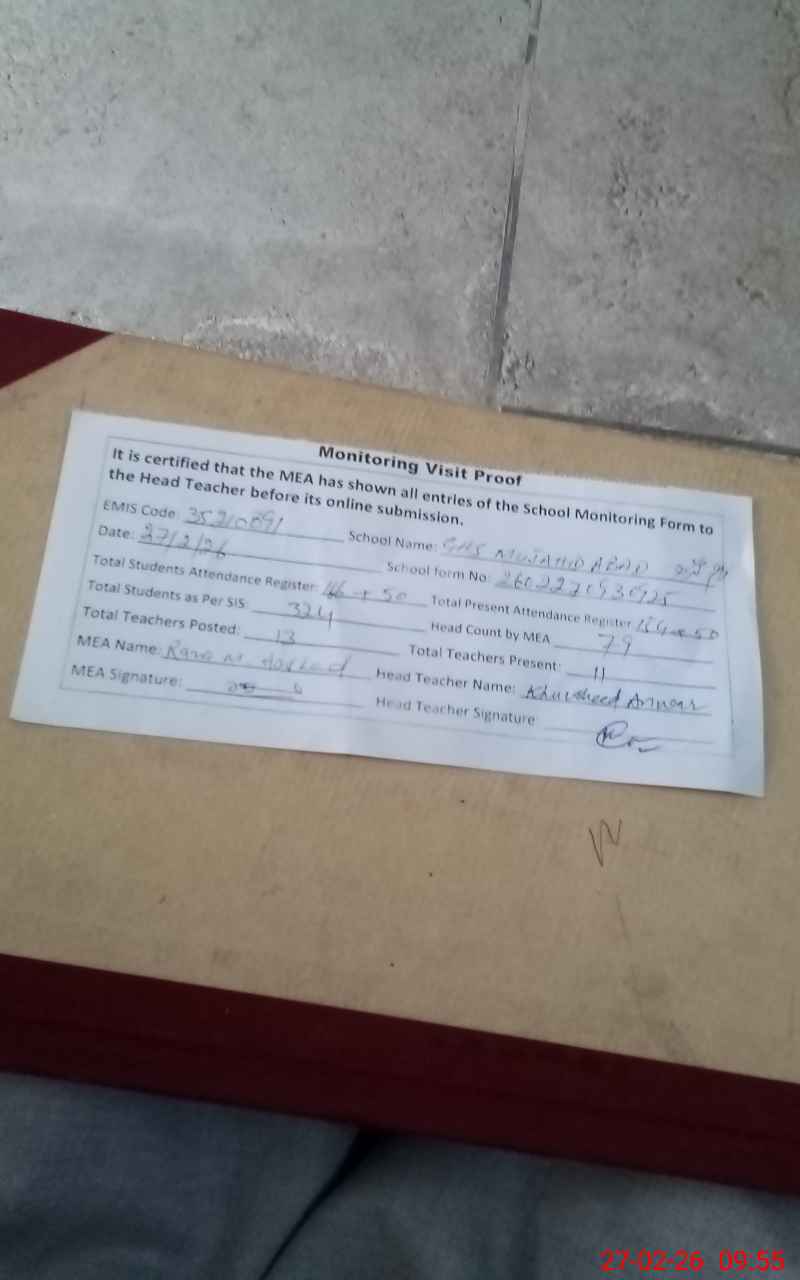 Monitoring Visit Proof
It is certified that the MEA has shown all entries of the School Monitoring Form to
the Head Teacher before its online submission.
EMIS Code: 35210891 School Name: GHS MUJAHID ABAD
Date: 27/2/26 School form No:
Total Students Attendance Register: + 50 Total Present Attendance Register + 50
Total Students as Per SIS: 324 Head Count by MEA 79
Total Teachers Posted: 13 Total Teachers Present: 11
MEA Name: Rana M. Head Teacher Name: Khursheed Anwar
MEA Signature: Head Teacher Signature
27-02-26 09:55